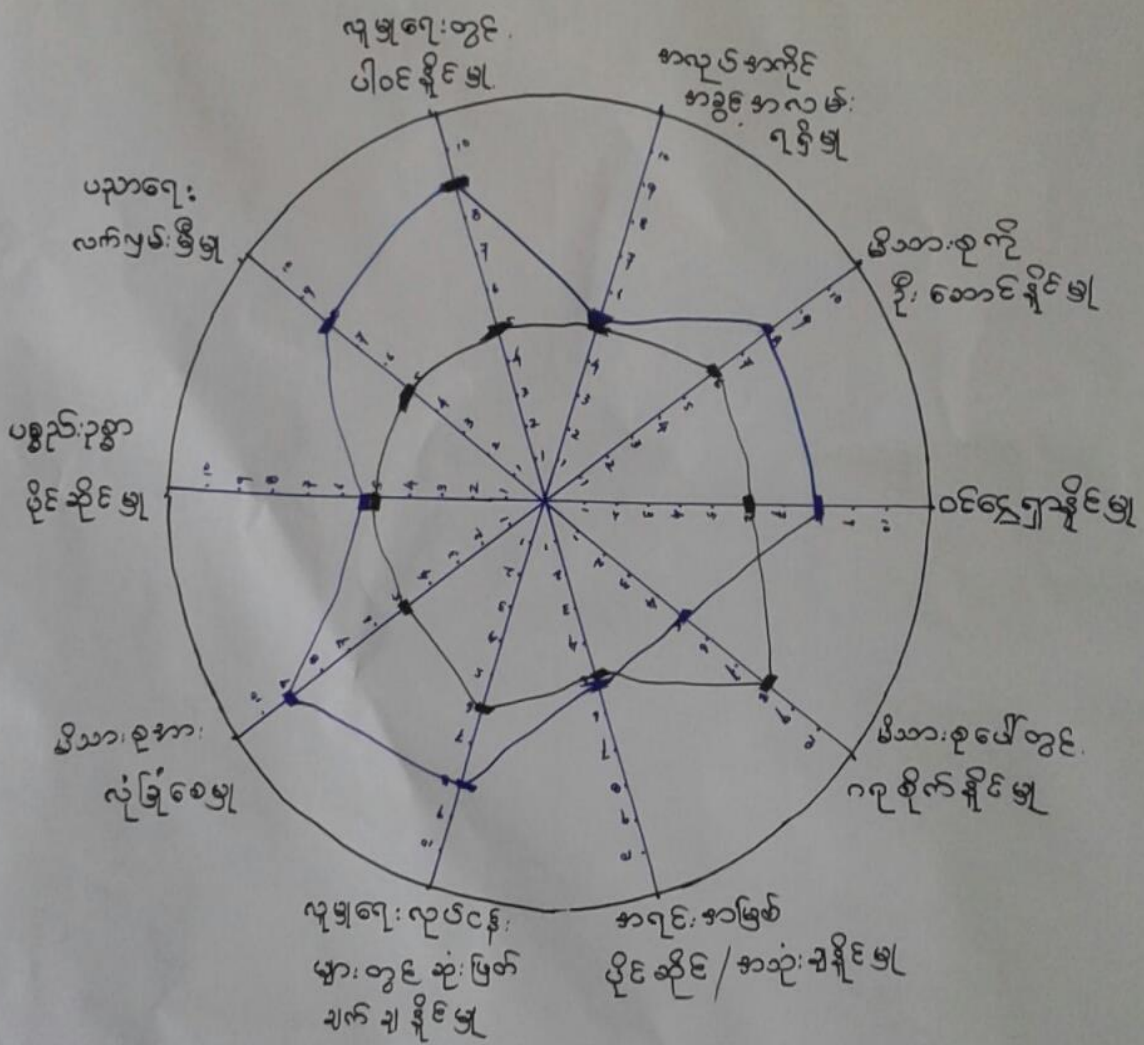 လူမှုရေးတွင်
ပါဝင်နိုင်မှု
အလုပ်အကိုင်
အခွင့်အလမ်း
ရရှိမှု
မိသားစုကို
ဦးဆောင်နိုင်မှု
ဝင်ငွေရှာနိုင်မှု
မိသားစုပေါ်တွင်
ဂရုစိုက်နိုင်မှု
အရင်းအမြစ်
ပိုင်ဆိုင်/အသုံးချနိုင်မှု
လူမှုရေးလုပ်ငန်း
များတွင် ဆုံးဖြတ်
ချက်ချနိုင်မှု
မိသားစုအား
လုံခြုံစေမှု
ပစ္စည်းဥစ္စာ
ပိုင်ဆိုင်မှု
ပညာရေး
လက်လှမ်းမှီမှု